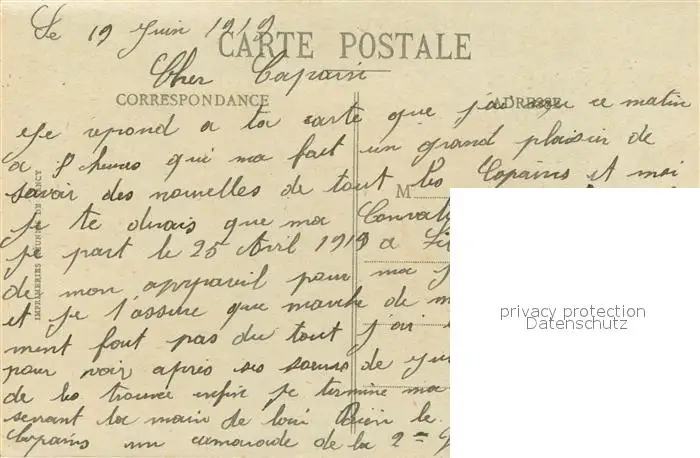 Le 19 Juin 1919
CARTE POSTALE
Cher Copain
CORRESPONDANCE
ADRESSE
Je repond a ta carte que j'ai ce matin
a 8 heures qui ma fait un grand plaisir de
savoir des nouvelles de tout les Copains et moi
M
je te dirais que ma
je part le 25 Avril 1919 a
de mon appareil pour ma
et je t'assure que marche de
ment fout pas du tout j'ai
pour voir après ses de
de les trouvé enfin je termine ma
serrant la main de loin Bien le
Copains un camarade de la 2
IMPRIMERIES REUNIES DE NANCY
privacy protection
Datenschutz